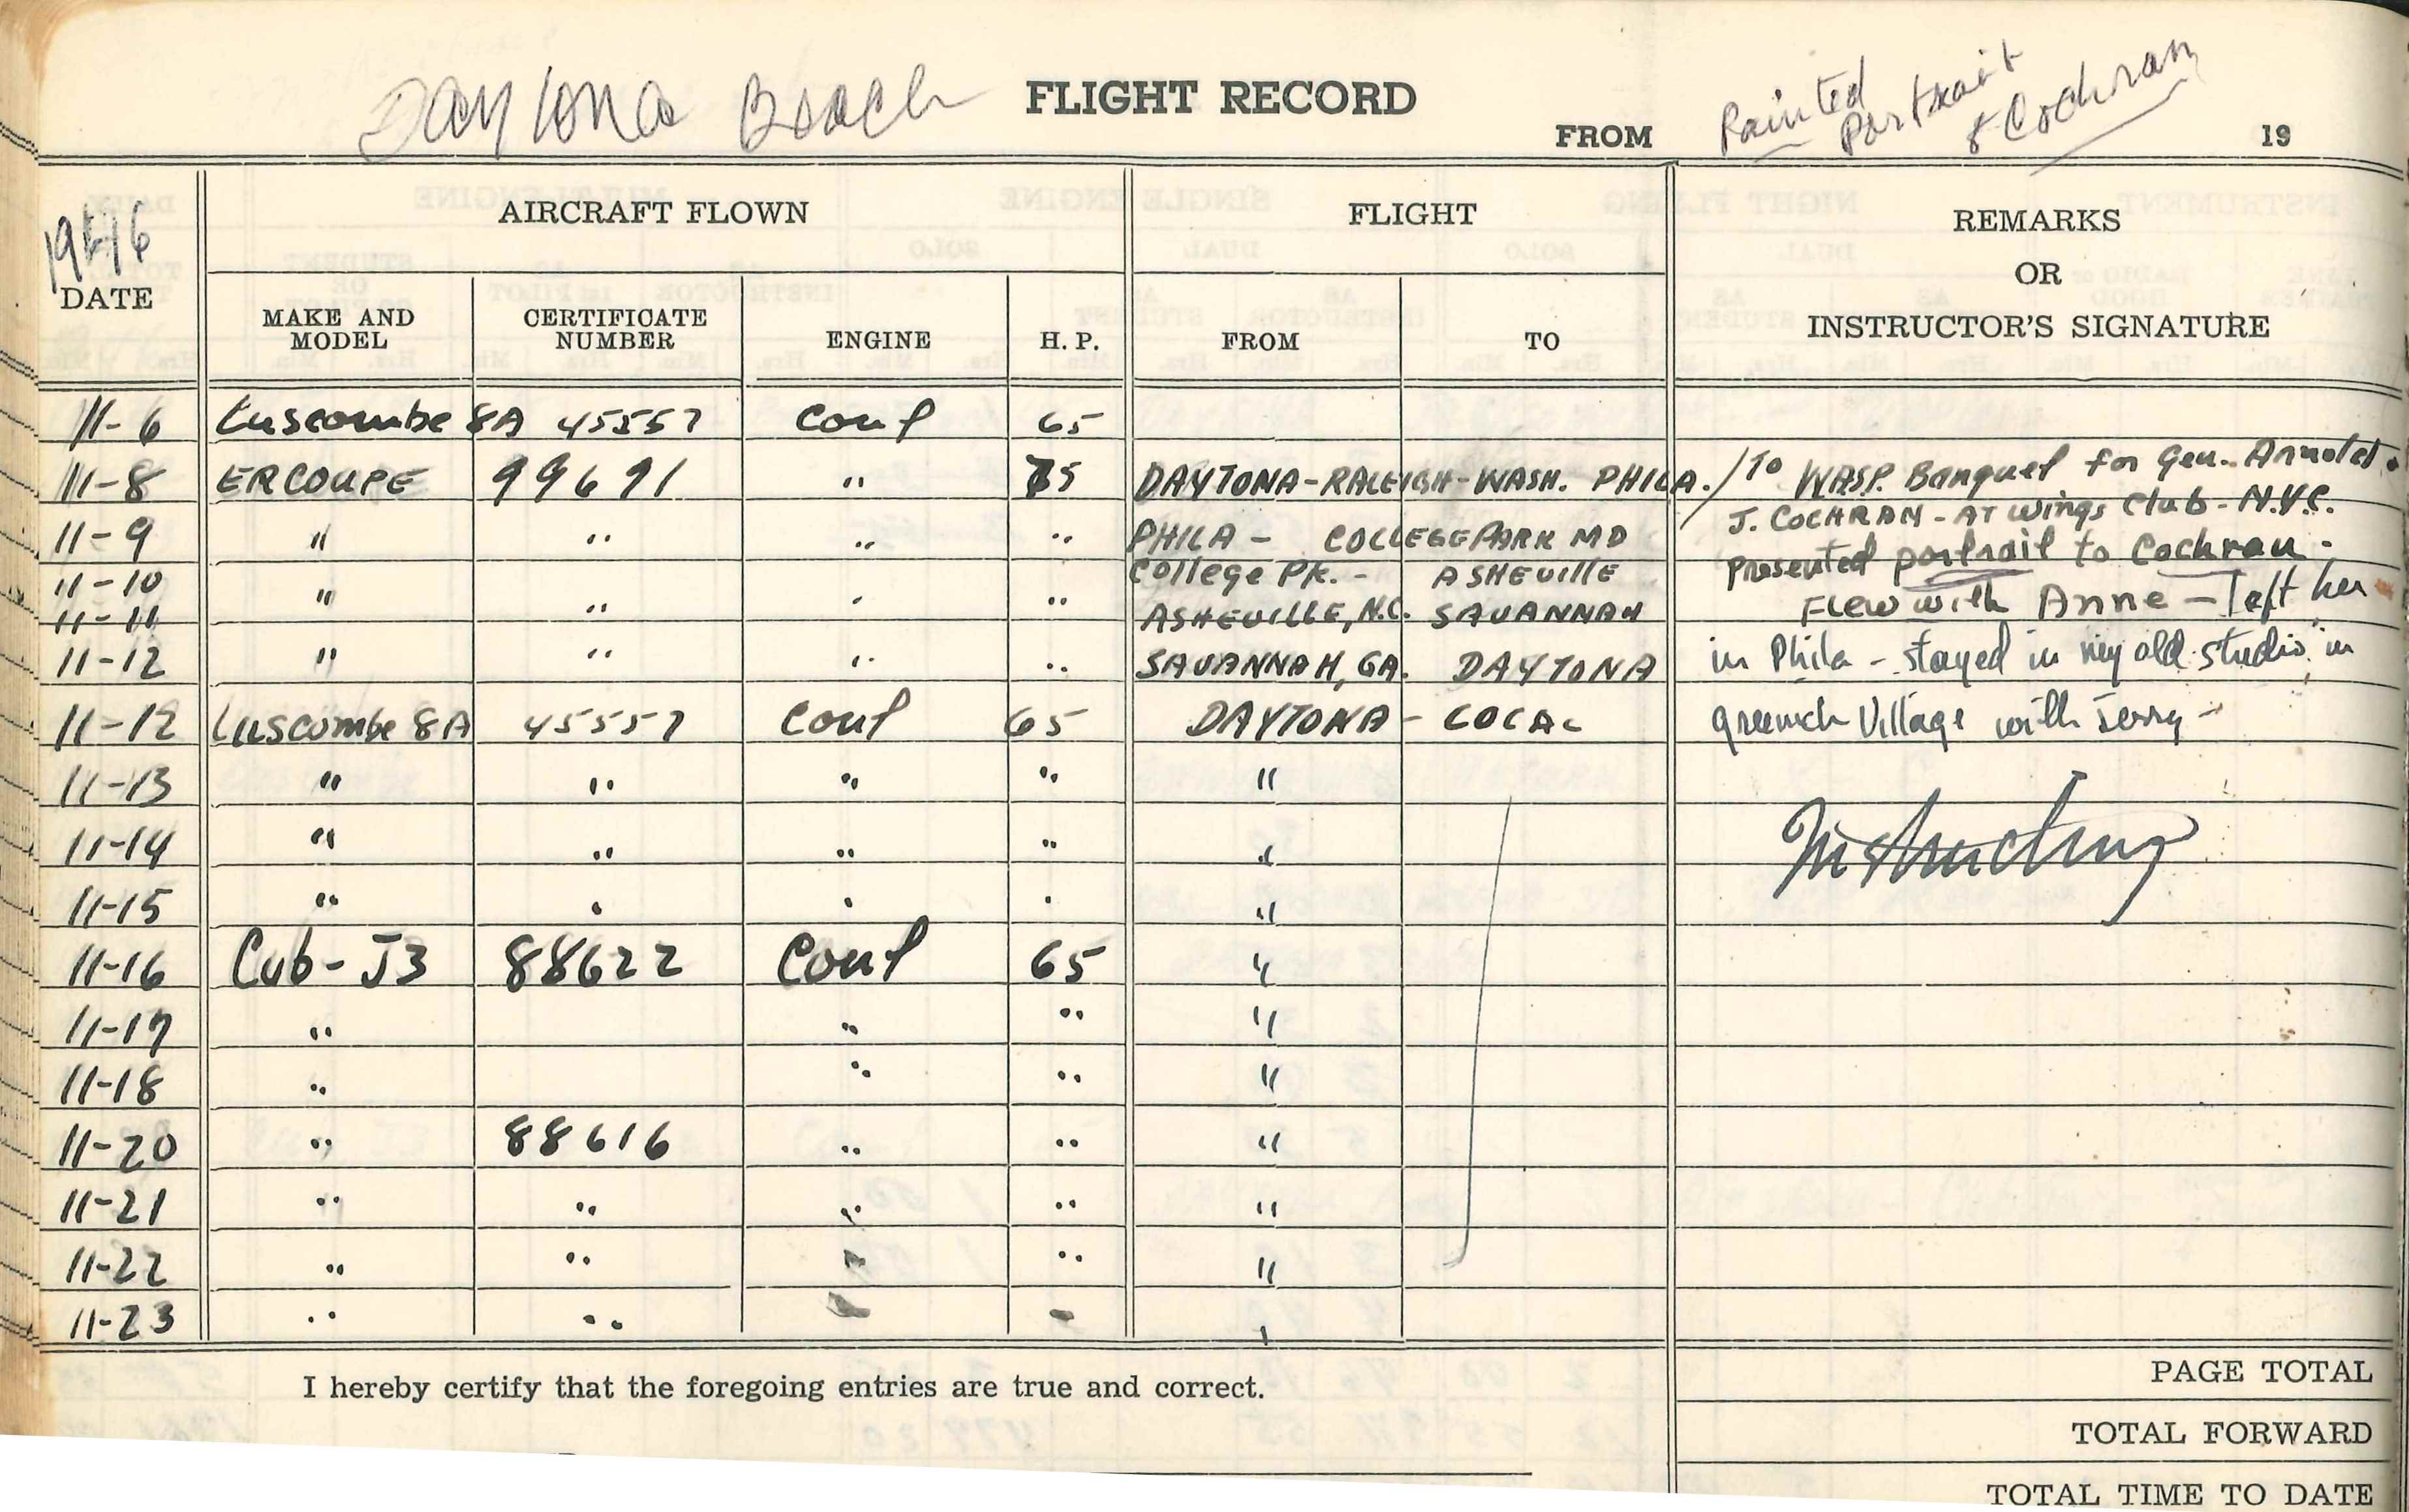 Daytona Beach FLIGHT RECORD
FROM Painted Portrait & Cochran 19
1946
DATE
AIRCRAFT FLOWN
FLIGHT
REMARKS
OR
INSTRUCTOR'S SIGNATURE
MAKE AND MODEL CERTIFICATE NUMBER ENGINE H. P. FROM TO
11-6 Luscombe 8A 45557 Conf 65
11-8 ERCOUPE 99671 " 75 DAYTONA-RALEIGH-WASH. PHILA. / To WASP. Banquet for Gen. Arnold.
J. COCHRAN - AT Wings Club - N.Y.C.
11-9 " " " " PHILA - COLLEGEPARK MD Presented portrait to Cochran -
11-10 " College Pk. - ASHEVILLE Flew with Anne - left her
11-11 " " " ASHEVILLE, N.C. SAVANNAH
11-12 " " " " SAVANNAH, GA. DAYTONA in Phila - stayed in my old studio in
11-12 Luscombe 8A 45557 Conf 65 DAYTONA - LOCAL Greenwich Village with Jerry -
11-13 " " " " "
11-14 " " " " " Instructing
11-15 " " " " "
11-16 Cub - J3 88622 Conf 65 "
11-17 " " " "
11-18 " " " "
11-20 " 88616 " " "
11-21 " " " " "
11-22 " " " " "
11-23 " " " " "
I hereby certify that the foregoing entries are true and correct.
PAGE TOTAL
TOTAL FORWARD
TOTAL TIME TO DATE